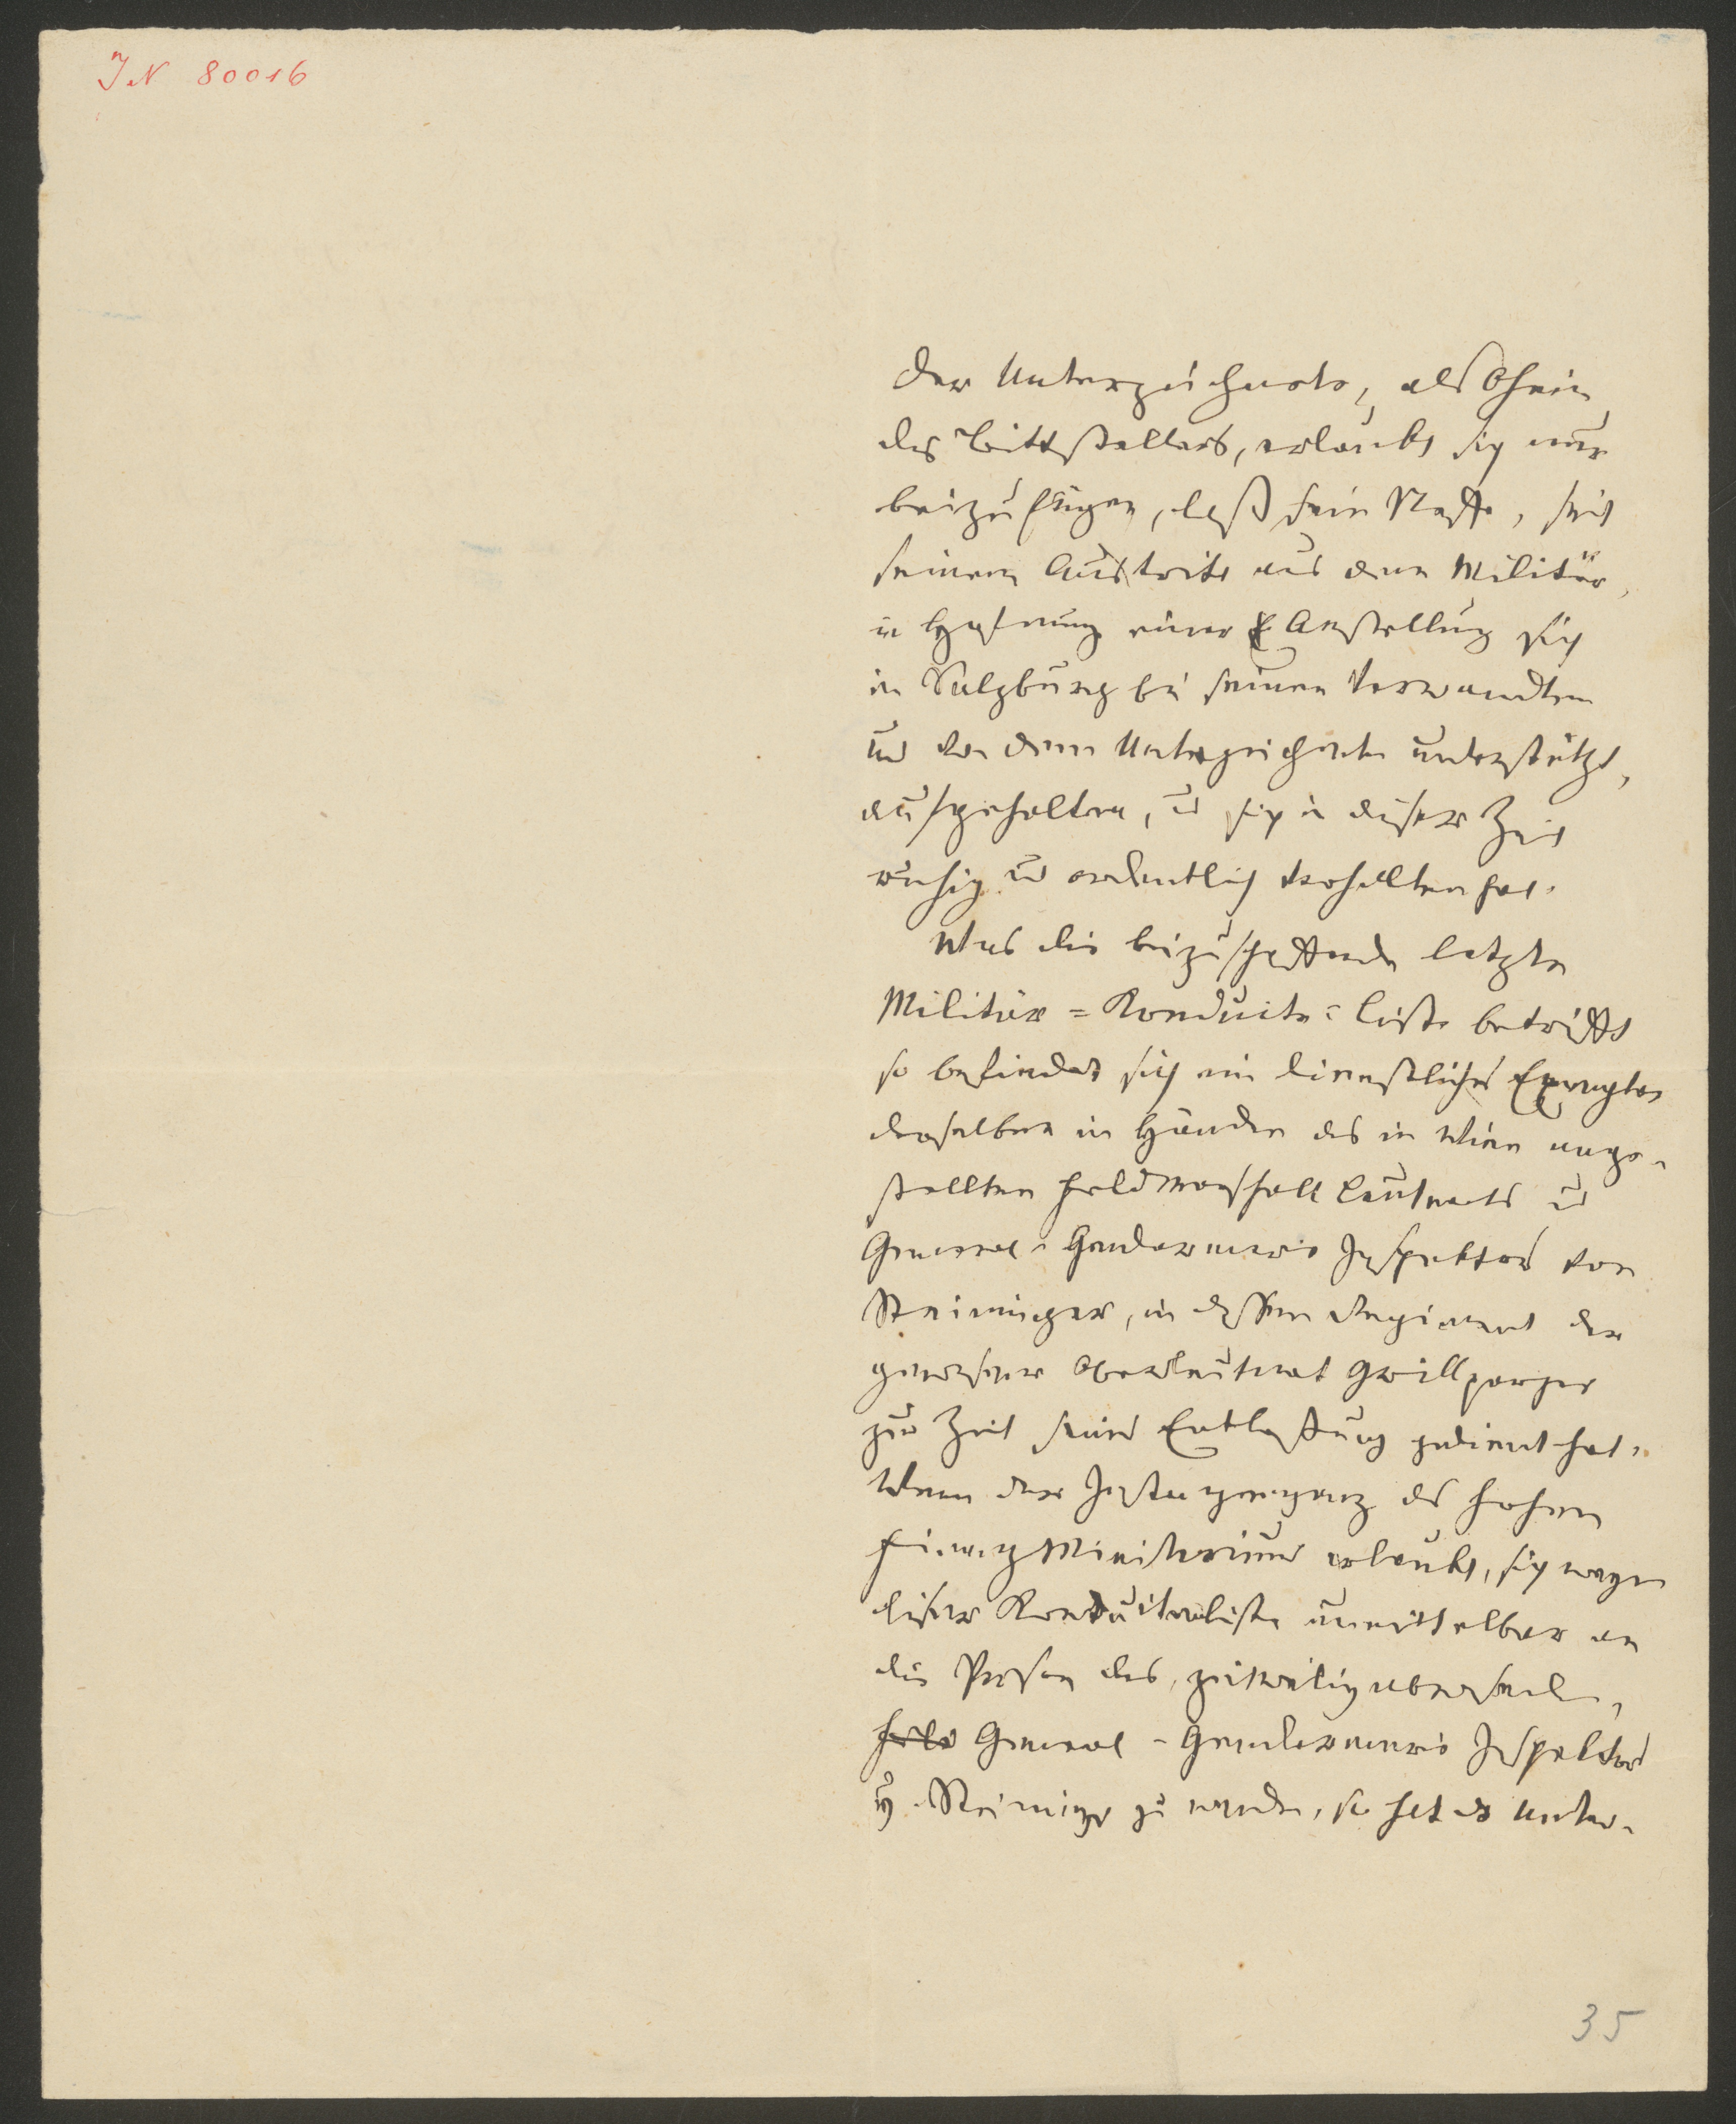 JN 80016
Der Unterzeichnete, als Oheim
des Bittstellers, erlaubt sich nur
beizufügen, daß sein Neffe, seit
seinem Austritt aus dem Militär,
in Hofnung einer Anstellung sich
in Salzburg bei seinen Verwandten
und von dem Unterzeichneten unterstützt,
aufgehalten, und sich in dieser Zeit
ruhig und ordentlich verhalten hat.
Was die beizuschaffende letzte
Militär=Konduite=Liste betrifft
so befindet sich ein dienstliches Exemplar
derselben in Händen des in Wien ange-
stellten Feldmarschall Leutnants und
General-Gendarmerie Inspektors von
Steininger, in dessen Regiment der
gewesene Oberleutnant Grillparzer
zur Zeit seiner Entlassung gedient hat.
Wenn der Instanzengang des hohen
Finanz Ministeriums erlaubt, sich wegen
dieser Konduitenliste unmittelbar an
die Person des, zeitweilig abwesenden,
General-Gendarmerie Inspektors
v. Steininger zu wenden, so hat der Unter-
35